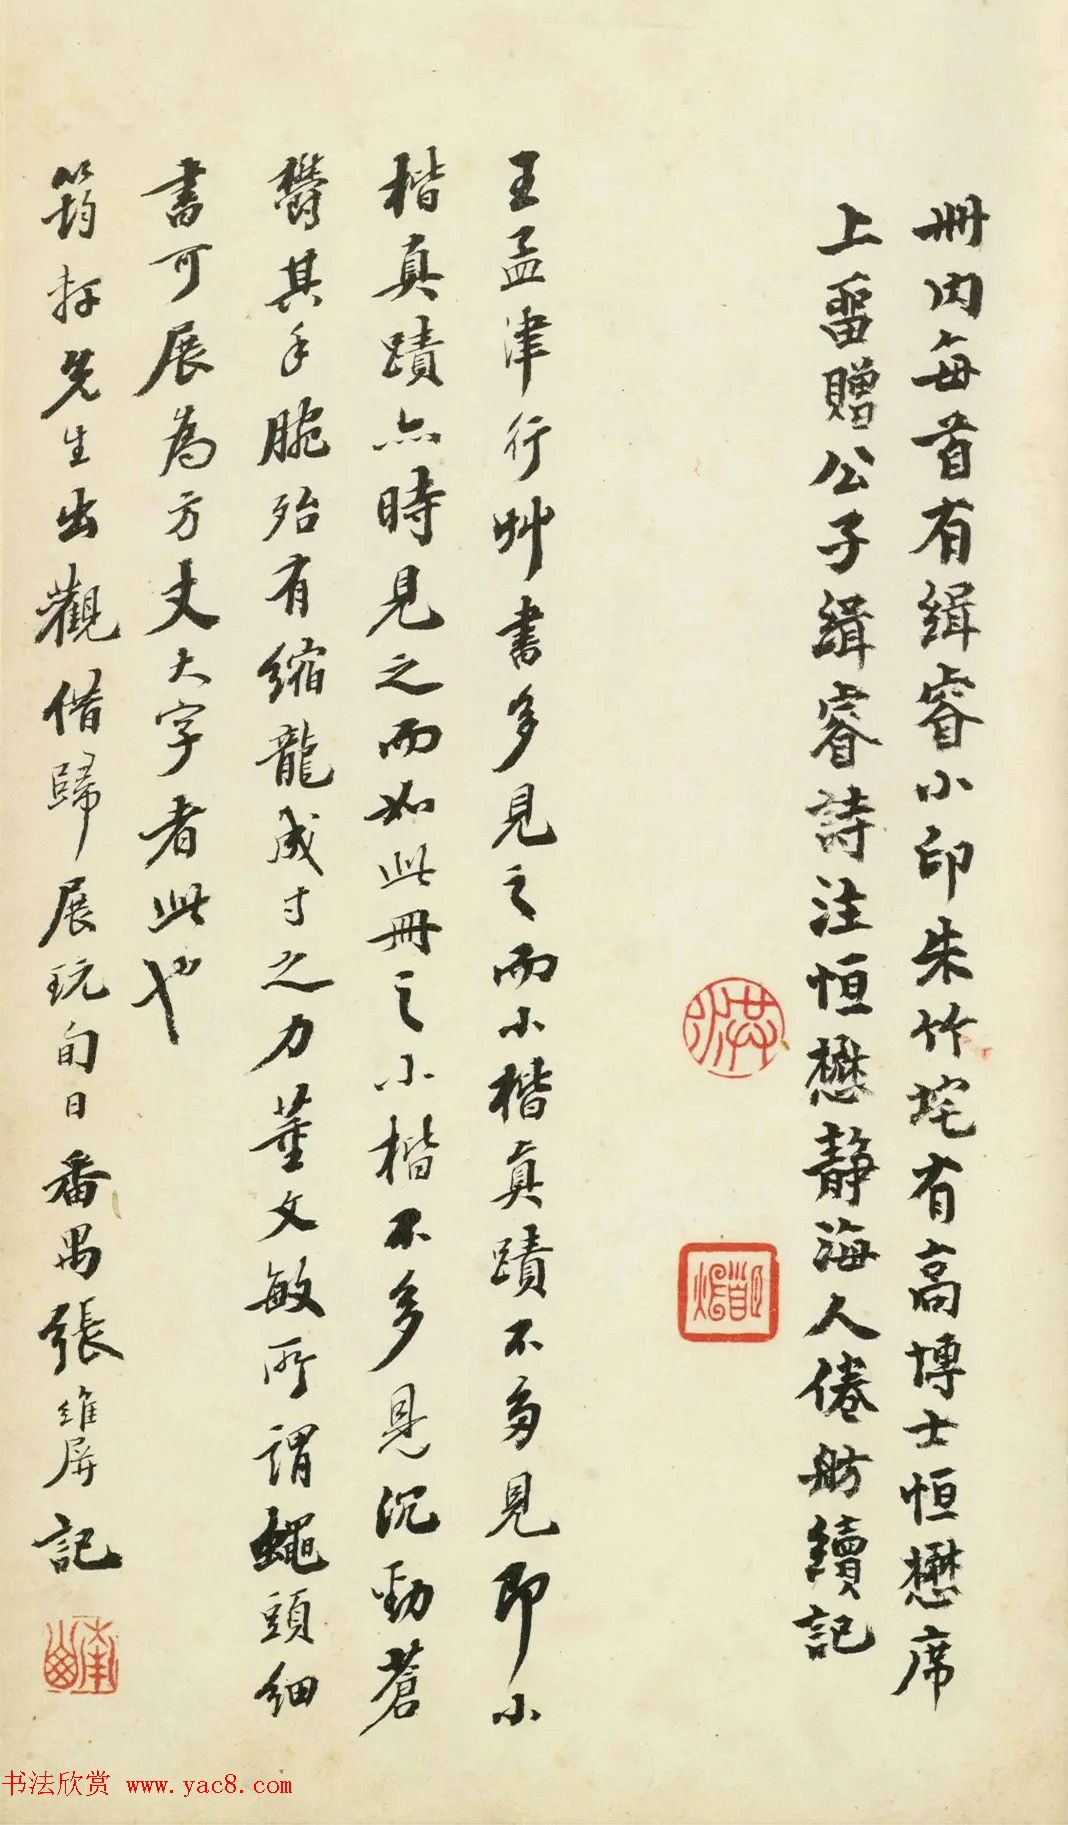 冊内每首有緝睿小印朱竹垞有高博士恒懋席
上畱贈公子緝睿詩注恒懋靜海人倦舫續記
王孟津行艸書多見之而小楷真蹟不多見即小
楷真蹟亦時見之而如此冊之小楷不多見沉勁蒼
鬱其手腕殆有縮龍成寸之力董文敏所謂蠅頭細
書可展為方丈大字者此也
筠 先生出觀借歸展玩旬日番禺張維屏記
书法欣赏 www.yac8.com